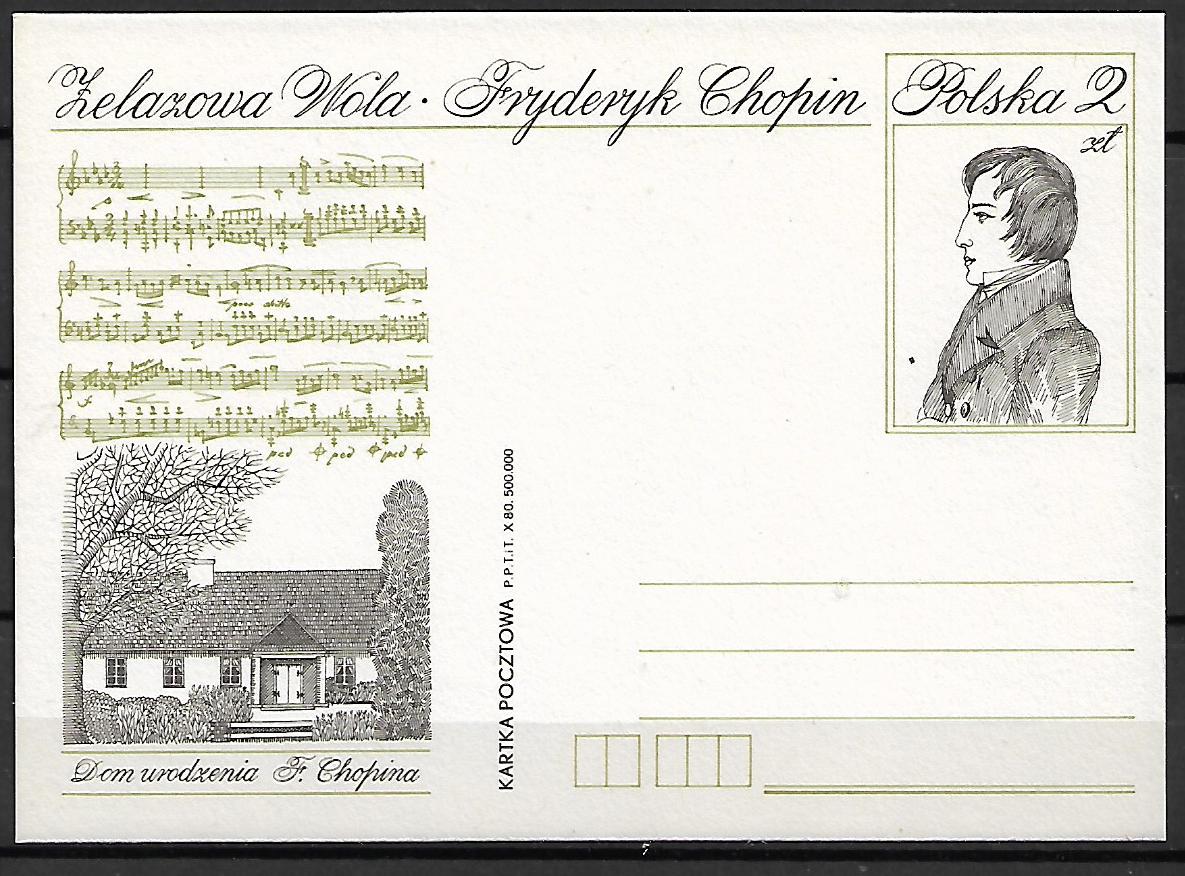 Żelazowa Wola · Fryderyk Chopin
Polska 2
zł
poco
ped ped ped
Dom urodzenia F. Chopina
KARTKA POCZTOWA P.P.T.iT. X 80. 500.000
7